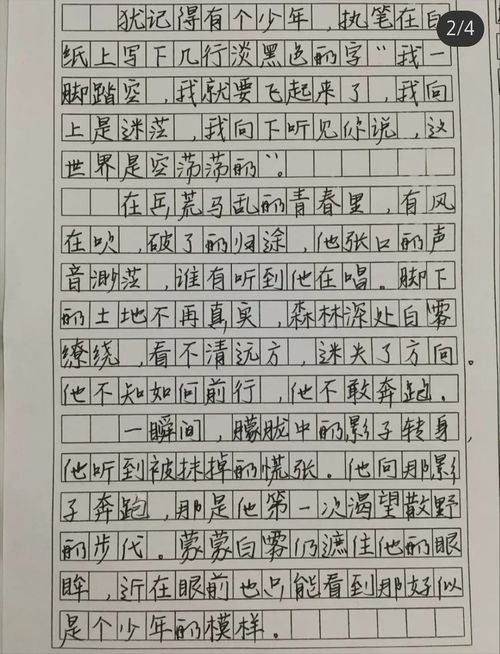 2/4
犹记得有个少年，执笔在白
纸上写下几行淡黑色的字“我一
脚踏空，我就要飞起来了，我向
上是迷茫，我向下听见你说，这
世界是空荡荡的”。
在兵荒马乱的青春里，有风
在吹，破了的归途，他张口的声
音渺茫，谁有听到他在唱。脚下
的土地不再真实，森林深处白雾
缭绕，看不清远方，迷失了方向。
他不知如何前行，他不敢奔跑。
一瞬间，朦胧中的影子转身，
他听到被抹掉的慌张。他向那影
子奔跑，那是他第一次渴望散野
的步伐。蒙蒙白雾仍遮住他的眼
眸，近在眼前也只能看到那好似
是个少年的模样。